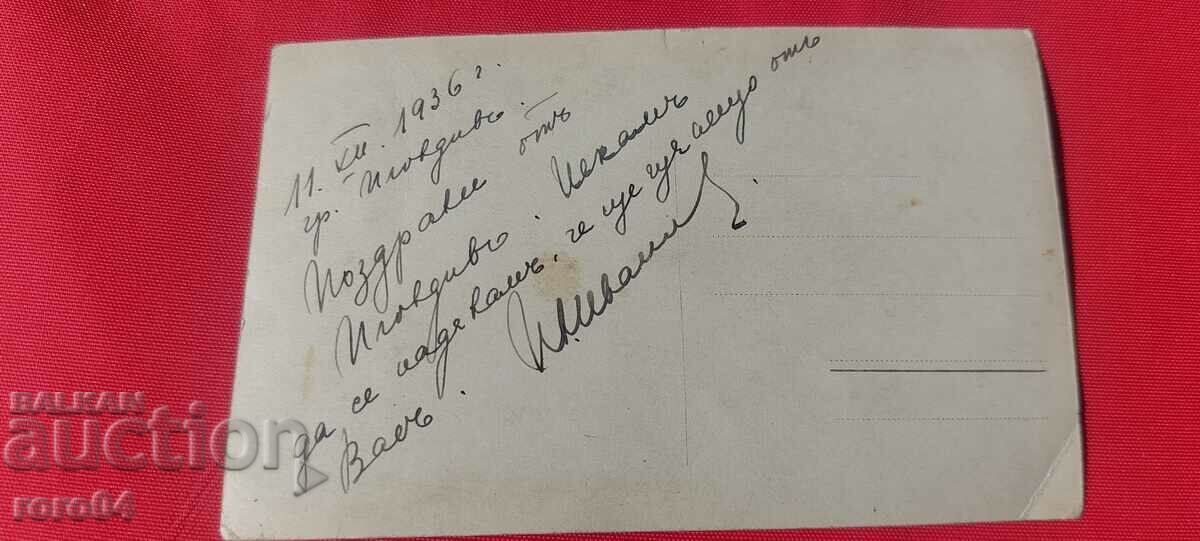 11. XII. 1936 г.
гр. Пловдивъ.
Поздрави отъ
Пловдивъ. Искамъ
да се надѣвамъ, че ще чуя нещо отъ
Васъ.
BALKAN
auction
roro64